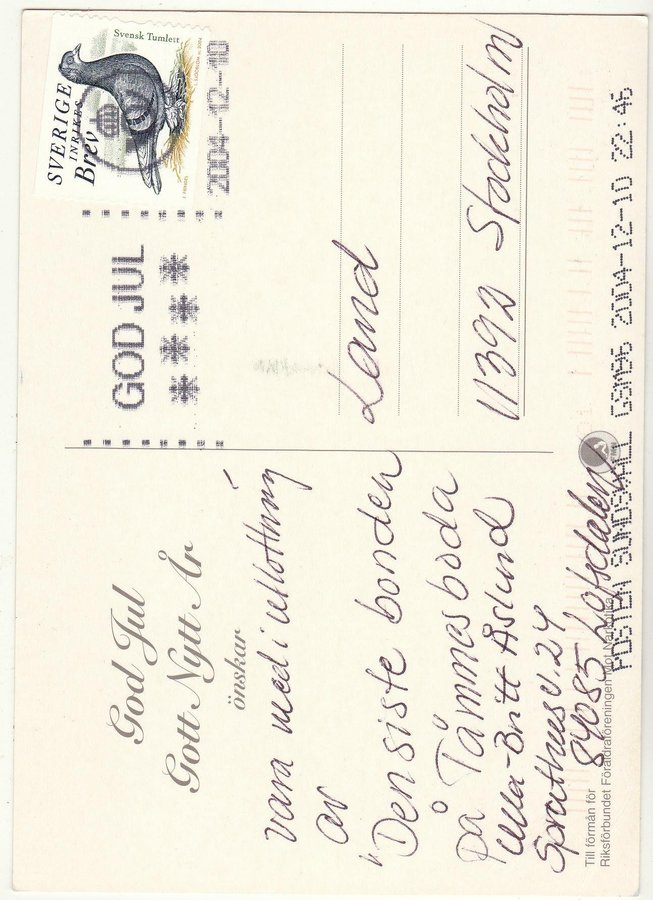 God Jul
Gott Nytt År
önskar
vara med i utlottning
av
"Den siste bonden
på Tämmesboda
Ulla-Britt Åslund
84085 Lofsdalen
Till förmån för
Riksförbundet Föräldraföreningen Mot Narkotika
Svensk Tumlett
SVERIGE
INRIKES
Brev
2004-12-10
GOD JUL
Land
11392 Stockholm
POSTEN SUNDSVALL GSM96 2004-12-10 22:46